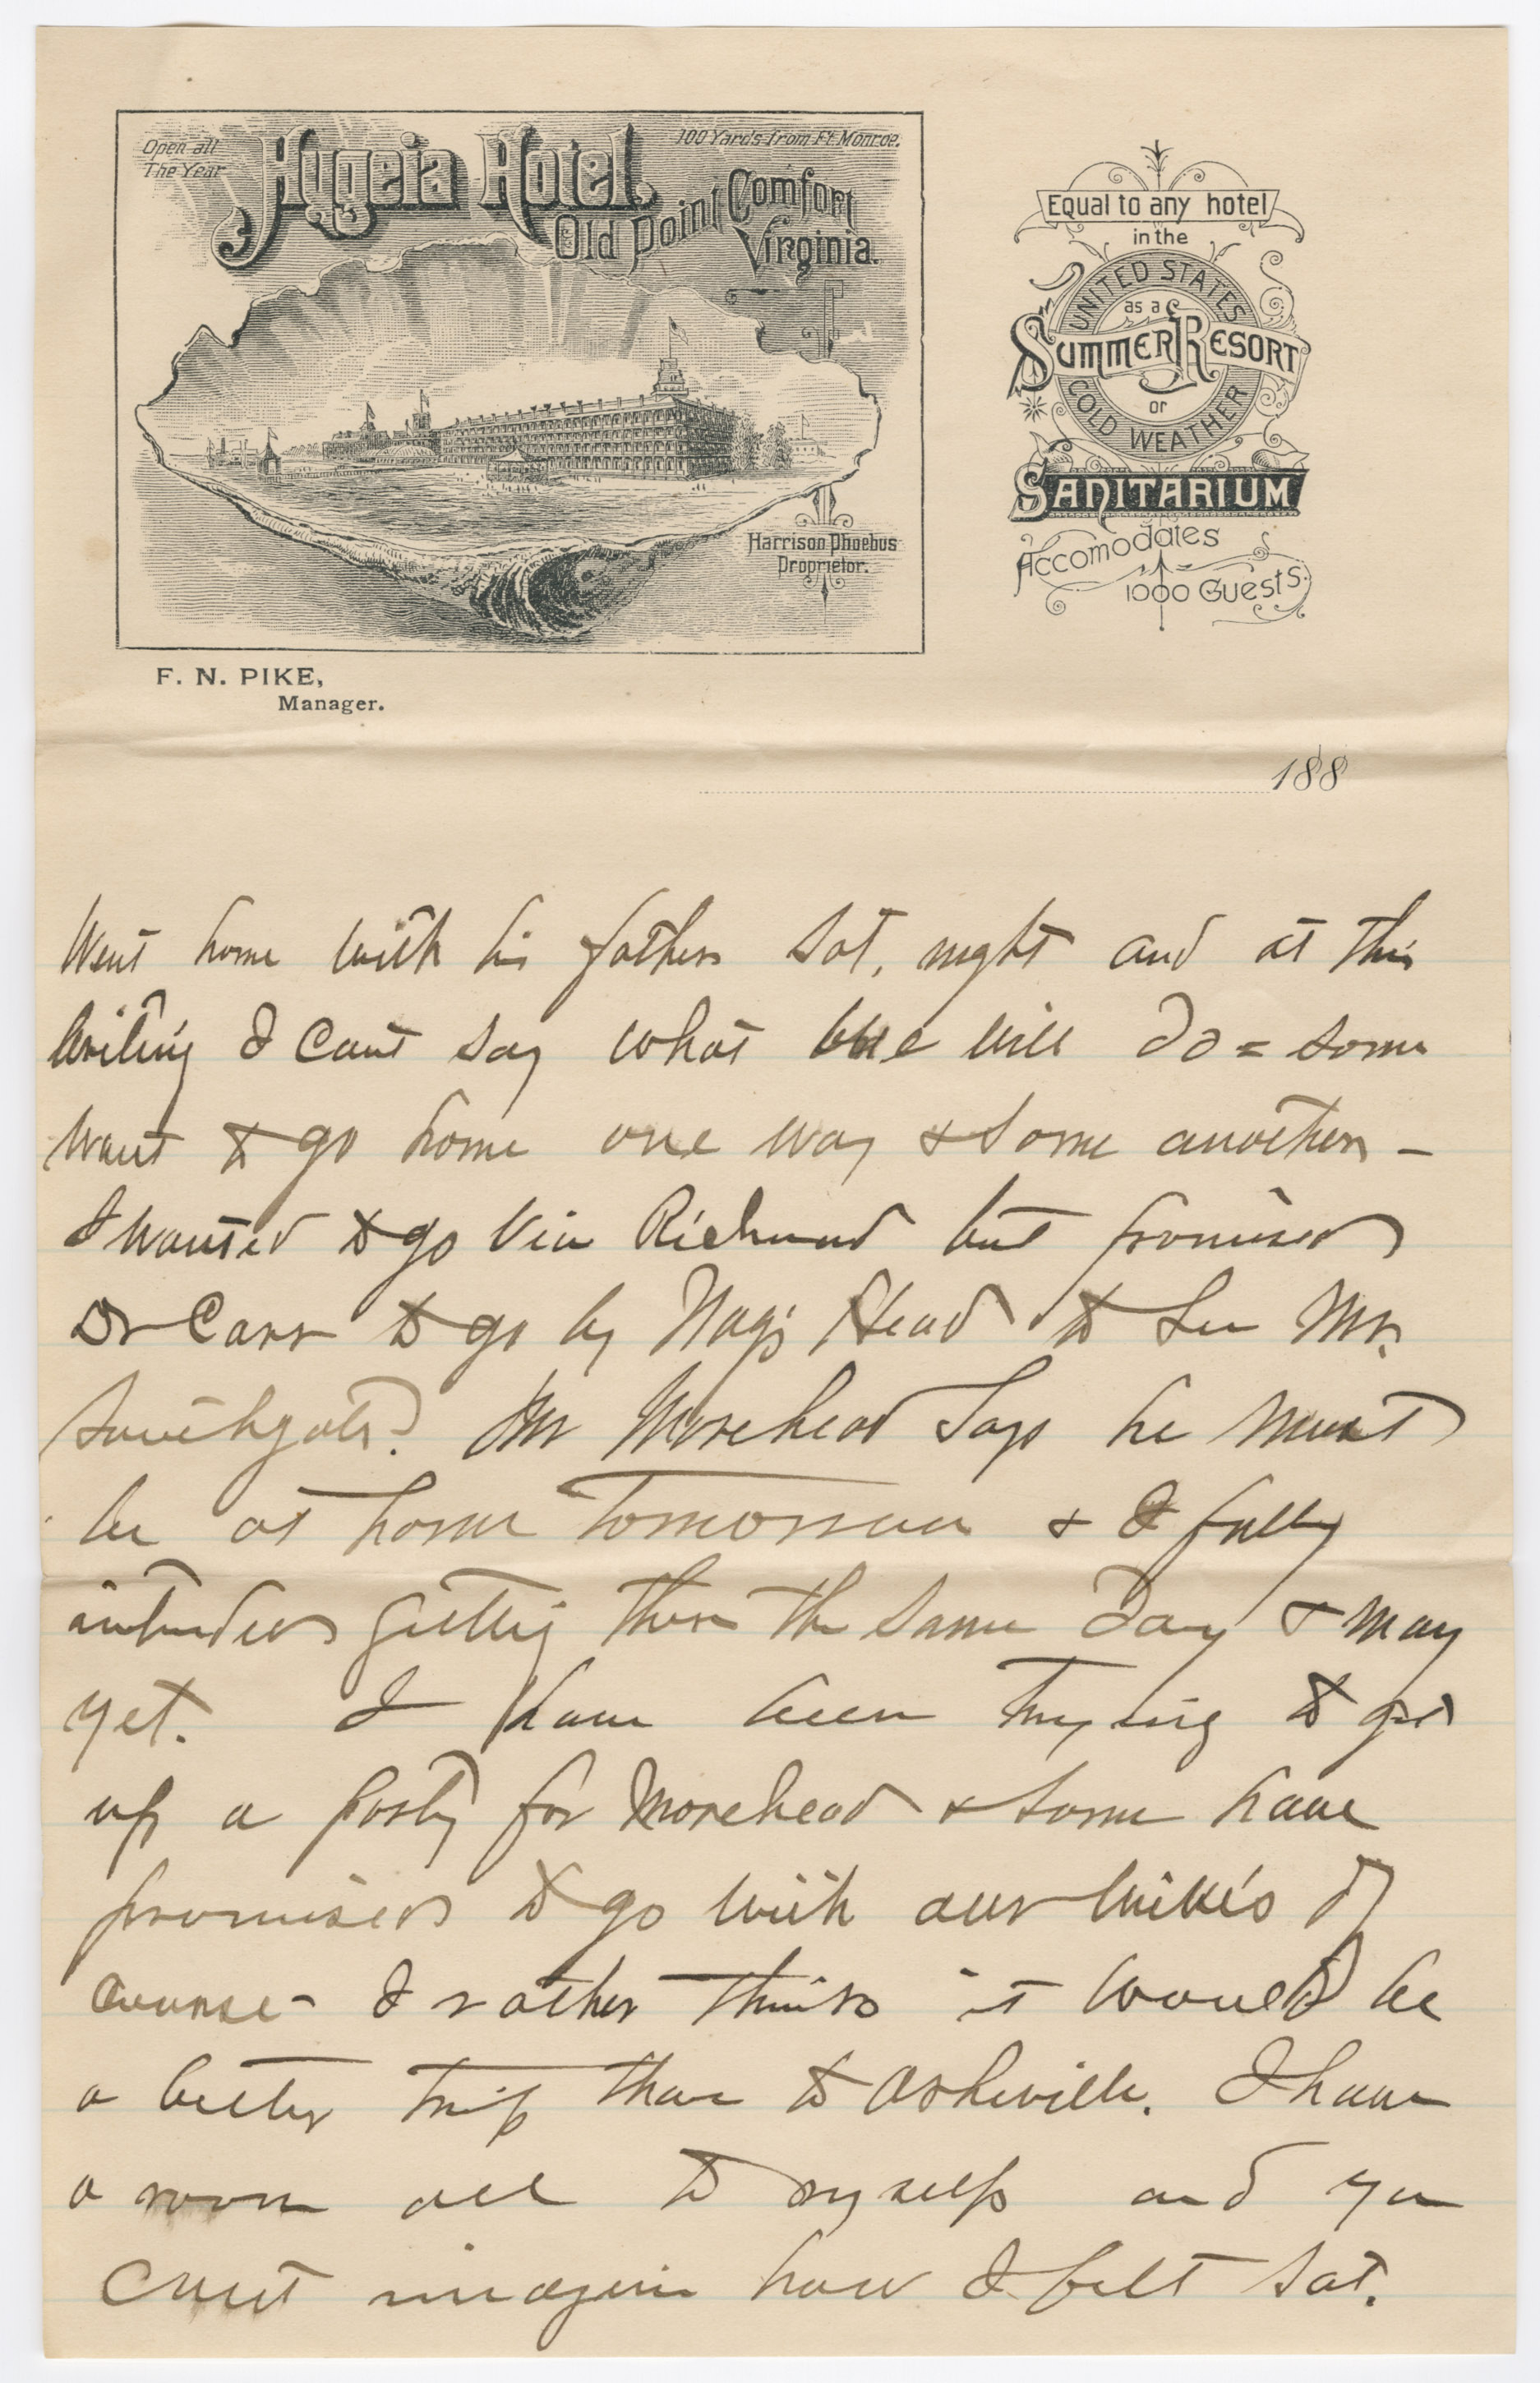 Open all
The Year
Hygeia Hotel.
100 Yards from Ft. Monroe.
Old Point Comfort
Virginia.
Harrison Phoebus
Proprietor.
F. N. PIKE,
Manager.
Equal to any hotel
in the
UNITED STATES
as a
SUMMER RESORT
or
COLD WEATHER
SANITARIUM
Accomodates
1000 Guests.
188
Went home with his father Sat. night and at this
writing I cant say what we will do = some
want to go home one way & some another -
I wanted to go via Richmond but promised
Dr Carr to go by Nags Head to see Mr.
Southgate. Mr Morehead says he must
be at home tomorrow & I fully
intended getting there the same day & may
yet. I have been trying to get
up a party for Morehead & some have
promised to go with our wives of
course - I rather think it would be
a better trip than to Asheville. I have
a room all to myself and you
cant imagine how I felt Sat.